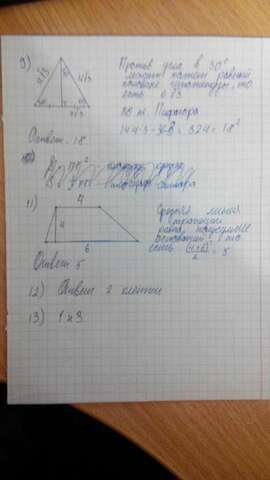 9)
12√3
12√3
6√3
Против угла в 30°
лежит катет равный
половине гипотенузы, то
есть 6√3
по т. Пифагора
144·3-36·3 = 324 = 18²
Ответ: 18
11)
4
4
6
Средняя линия
трапеции
равна полусумме
оснований, то
есть (4+6)/2 = 5
Ответ 5
12) Ответ 2 клетки
13) 1 и 3